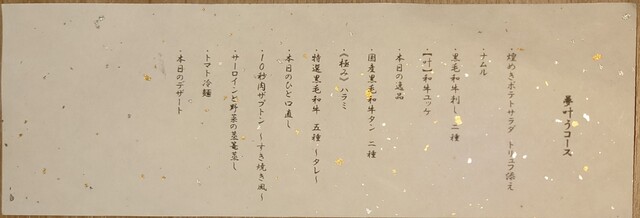 夢叶うコース
・煌めきポテトサラダ トリュフ添え
・ナムル
・黒毛和牛刺し 二種
・【叶】和牛ユッケ
・本日の逸品
・国産黒毛和牛タン 二種
・《極み》ハラミ
・特選黒毛和牛 五種 ～タレ～
・本日のひと口直し
・10秒肉ザブトン ～すき焼き風～
・サーロインと野菜の茎菴蒸し
・トマト冷麺
・本日のデザート